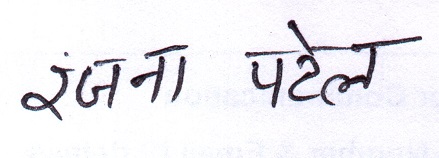 रंजना पटेल